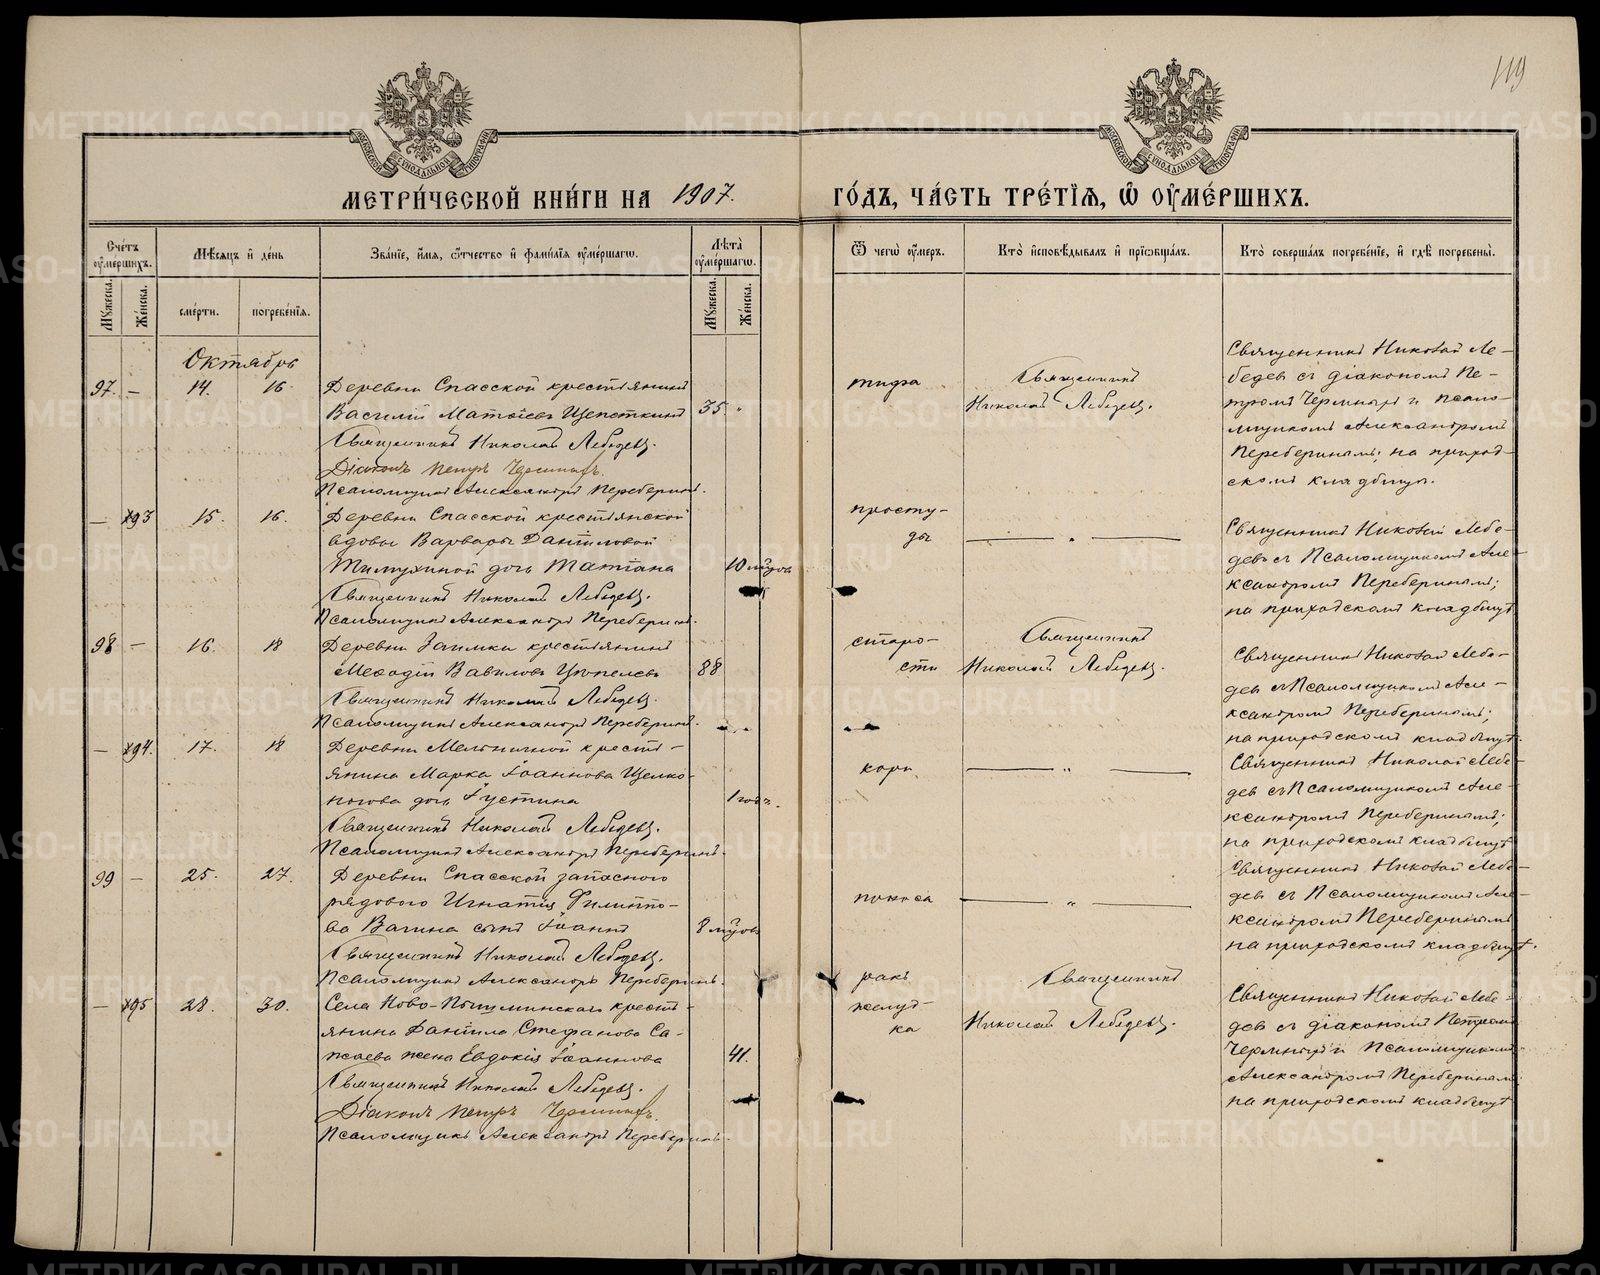 119
МОСКОВСКОЙ СѴНОДАЛЬНОЙ ТИПОГРАФІИ
МОСКОВСКОЙ СѴНОДАЛЬНОЙ ТИПОГРАФІИ
МЕТРИ́ЧЕСКОЙ КНИ́ГИ НА 1907.
ГО́ДЪ, ЧА́СТЬ ТРЕ́ТЇѦ, Ѿ ОУ҆МЕ́РШИХЪ.
Сче́тъ оу҆ме́ршихъ.
Мѣ́сѧцъ и҆ де́нь
Зва́нїе, и҆́мѧ, ѻ҆́тчество и҆ фами́лїѧ оу҆ме́ршагѡ.
Лѣ́та оу҆ме́ршагѡ.
Ѿ чегѡ̀ оу҆́меръ.
Кто̀ и҆сповѣ́дывалъ и҆ прїѡбща́лъ.
Кто̀ соверша́лъ погребе́нїе, и҆ гдѣ̀ погребены̀.
Мꙋ́жеска.
Же́нска.
сме́рти.
погребе́нїѧ.
Мꙋ́жеска.
Же́нска.
Октябрь
97. – 14. 16.
Деревни Спасской крестьянинъ
Василій Матѳіевъ Щепеткинъ 35 "
Священникъ Николай Лебедевъ.
Діаконъ Петръ
Псаломщикъ Александръ Переберинъ.
тифа
Священникъ
Николай Лебедевъ.
Священникъ Николай Ле-
бедевъ съ діакономъ Пе-
тромъ и псало-
мщикомъ Александромъ
Переберинымъ; на приход-
скомъ кладбищѣ.
– 93 15. 16.
Деревни Спасской крестьянской
вдовы Варвары Даниловой
дочь Татіана 10 м-цовъ
Священникъ Николай Лебедевъ.
Псаломщикъ Александръ Переберинъ.
просту-
ды
— " —
Священникъ Николай Лебе-
девъ съ Псаломщикомъ Але-
ксандромъ Переберинымъ;
на приходскомъ кладбищѣ
98 – 16. 18
Деревни Заимки крестьянинъ
Меѳодій Вавиловъ 88
Священникъ Николай Лебедевъ.
Псаломщикъ Александръ Переберинъ.
старо-
сти
Священникъ
Николай Лебедевъ.
Священникъ Николай Лебе-
девъ съ Псаломщикомъ Але-
ксандромъ Переберинымъ;
на приходскомъ кладбищѣ.
– 94. 17. 18
Деревни Мельничной кресть-
янина Марка Іоаннова Щелко-
ногова дочь Іустина 1 года.
Священникъ Николай Лебедевъ.
Псаломщикъ Александръ Переберинъ.
кори
— " —
Священникъ Николай Лебе-
девъ съ Псаломщикомъ Але-
ксандромъ Переберинымъ;
на приходскомъ кладбищѣ
99 – 25. 27.
Деревни Спасской запасного
рядового Игнатія Филиппо-
ва Вагина сынъ Іоаннъ 8 м-цовъ
Священникъ Николай Лебедевъ.
Псаломщикъ Александръ Переберинъ.
поноса
— " —
Священникъ Николай Лебе-
девъ съ Псаломщикомъ Але-
ксандромъ Переберинымъ
на приходскомъ кладбищѣ.
– 95 28. 30.
Села Ново-Пышминскаго кресть-
янина Даніила Стефанова Са-
жаева жена Евдокія Іоаннова 41.
Священникъ Николай Лебедевъ.
Діаконъ Петръ
Псаломщикъ Александръ Переберинъ.
ракъ
желуд-
ка
Священникъ
Николай Лебедевъ.
Священникъ Николай Лебе-
девъ съ діакономъ Петромъ
и Псаломщикомъ
Александромъ Переберинымъ
на приходскомъ кладбищѣ
METRIKI.GASO-URAL.RU